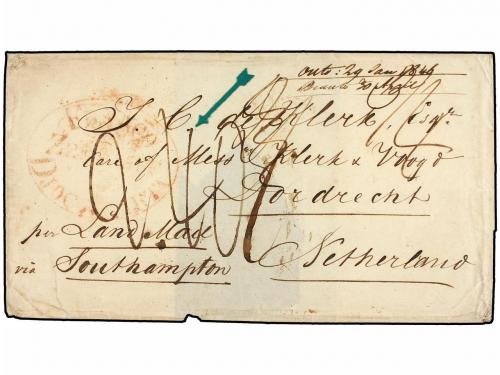 Ontv: 29 Jan 1846
Beantw 30 April
J. C. de Klerk, Esqr.
Care of Messrs Klerk & Voogd
Dordrecht
per Land Mail
via Southampton
Netherland